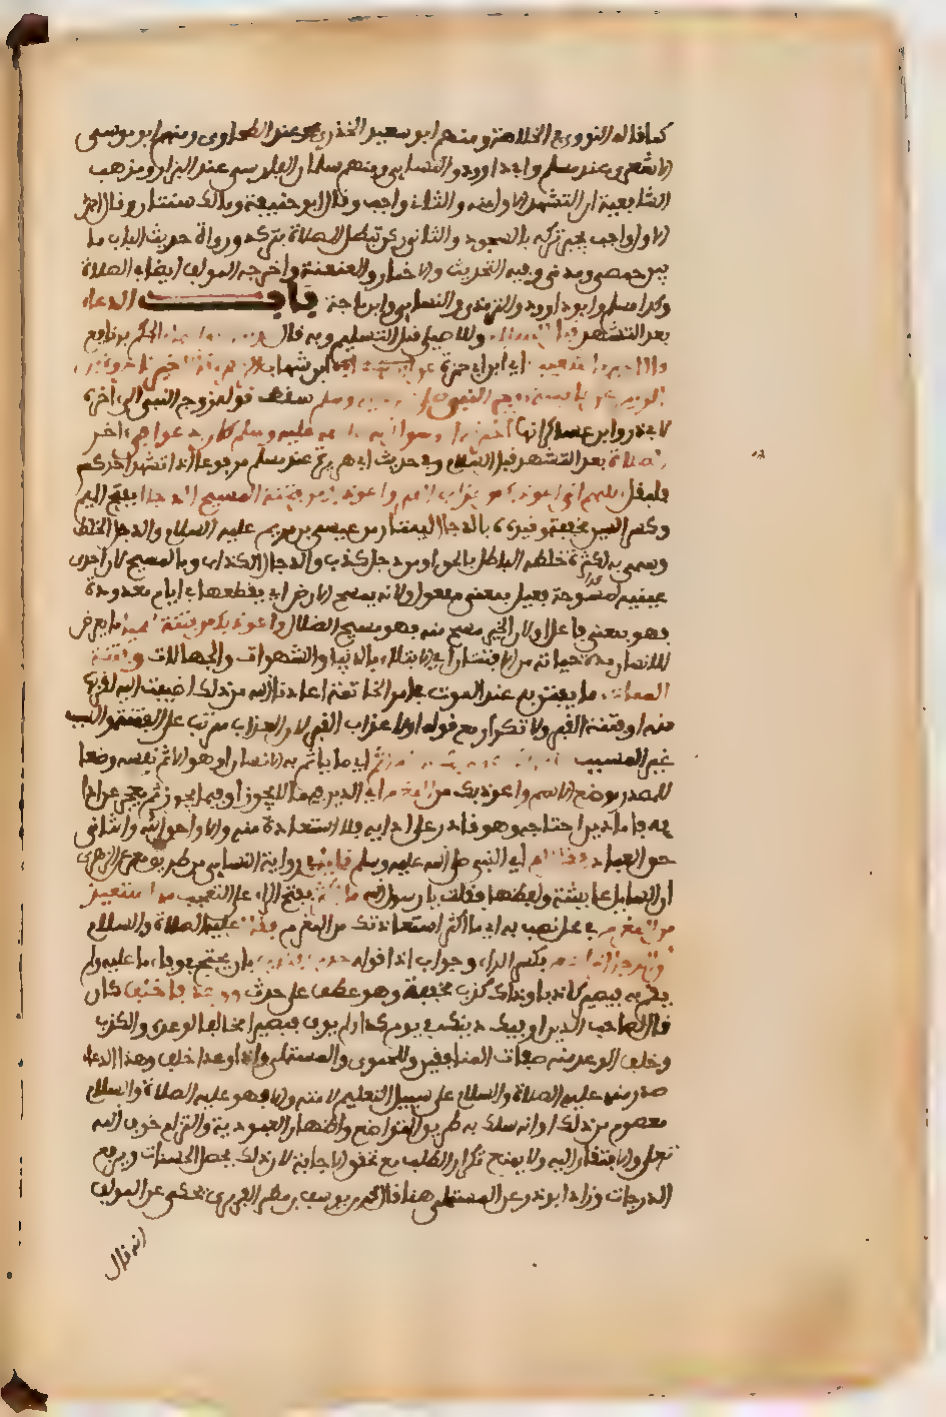 كما قاله النووي في الخلاصة ومنهم ابو سعيد الخدري عند الطحاوي ومنهم ابو موسى
الاشعري عند مسلم وابي داوود والنساءي ومنهم سلمان الفارسي عند البزار ومذهب
الشافعية ان التشهد الاول سنة والثاني واجب وقال ابو حنيفة ومالك سنتان وقال احمد
الاول واجب يجبر تركه بالسجود والثاني ركن تبطل الصلاة بتركه ورواة حديث الباب ما
بين حمصي ومدني وفيه التحديث والاخبار والعنعنة واخرجه المولف ايضا في الصلاة
وكذا مسلم وابو داوود والترمذي والنساءي وابن ماجة باب الدعاء
بعد التشهد قبل السلام وللاصيلي قبل التسليم وبه قال الحكم بن نافع
قال شعيب اي ابن ابي حمزة عن ابن شهاب قال اخبرنا عروة بن
الزبير عن عايشة زوج النبي صلى الله عليه وسلم سقط قوله زوج النبي الى اخره
لابي ذر وابن عساكر انها اخبرته ان رسول الله صلى الله عليه وسلم كان يدعوا في اخر
الصلاة بعد التشهد قبل السلام وفي حديث ابي هريرة عند مسلم مرفوعا اذا تشهد احدكم
فليقل اللهم اني اعوذ بك من عذاب القبر واعوذ بك من فتنة المسيح الدجال بفتح الميم
وكسر السين مخففة وقيده بالدجال ليمتاز من عيسى بن مريم عليه السلام والدجل الخلط
وسمي به لكثرة خلطه الباطل بالحق او من دجل كذب والدجال الكذاب وبالمسيح لان احدى
عينيه ممسوحة فعيل بمعنى مفعول ولانه يمسح الارض اي يقطعها في ايام معدودة
فهو بمعنى فاعل او لان الخير مسح منه فهو مسيح الضلال واعوذ بك من فتنة المحيا ما يعرض
للانسان مدة حياته من الافتتان اي الابتلاء بالدنيا والشهوات والجهالات وفتنة
الممات ما يفتن به عند الموت في امر الخاتمة اعاذنا الله من ذلك اضيفت اليه لقربها
منه او فتنة القبر ولا تكرار مع قوله اولا عذاب القبر لان العذاب مترتب على الفتنة والسبب
غير المسبب اي ما ياثم به الانسان او هو الاثم نفسه وضعا
للمصدر موضع الاسم واعوذ بك من المغرم اي الدين فيما لا يجوز او فيما يجوز ثم يعجز عن ادا
يه فاما دين احتاجه وهو قادر على ادايه فلا استعاذة منه والاول حق الله والثاني
حق العباد فقال له اي النبي صلى الله عليه وسلم قايل في رواية النساءي من طريق معمر عن الزهري
ان القايل عايشة ولفظها فقلت يا رسول الله ما اكثر بفتح الراء على التعجب ما تستعيذ
من المغرم في محل نصب به اي ما اكثر استعاذتك من المغرم فقال عليه الصلاة والسلام
ان الرجل اذا غرم بكسر الراء وجواب اذا قوله حدث فكذب بان يحتج بوفاء ما عليه ولم
يقم به فيصير كاذبا وذال كذب مخففة وهو عطف على حدث ووعد فاخلف كان
قال لصاحب الدين اوفيك دينك في يوم كذا ولم يوف فيصير مخالفا لوعده والكذب
وخلف الوعد من صفات المنافقين وللحموي والمستملي واذا وعد اخلف وهذا الدعاء
صدر منه عليه الصلاة والسلام على سبيل التعليم لامته والا فهو عليه الصلاة والسلام
معصوم من ذلك او انه سلك به طريق التواضع واظهار العبودية والتزام خوف الله
تعلى والافتقار اليه ولا يمنع تكرار الطلب مع تحقق الاجابة لان ذلك يحصل الحسنات ويرفع
الدرجات وزاد ابو ذر عن المستملي هنا قال محمد بن يوسف بن مطر الفربري يحكى عن المولف
انه قال